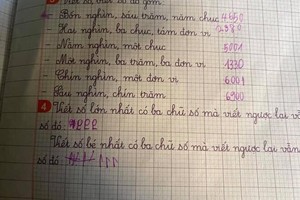 Viết số
- Bốn nghìn, sáu trăm, năm chục 4650
- Hai nghìn, ba chục, tám đơn vị
- Năm nghìn, một chục 5001
- Một nghìn, ba trăm, ba đơn vị 1330
- Chín nghìn, một đơn vị 6001
- Sáu nghìn, chín trăm 6900
4 Viết số lớn nhất có ba chữ số mà viết ngược lại vẫn
số đó:
Viết số bé nhất có ba chữ số mà viết ngược lại vẫn
số đó: